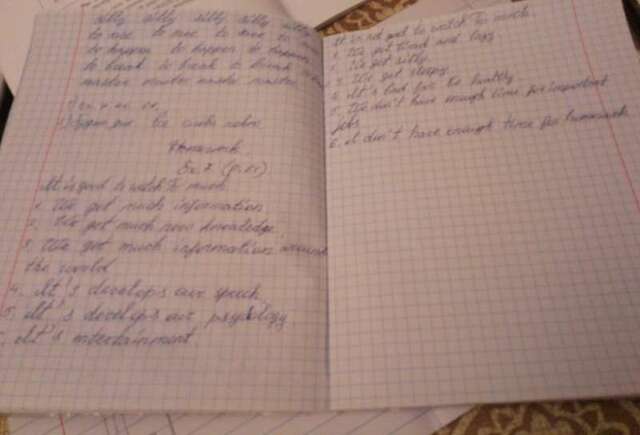 silly silly silly silly silly
to rise to rise to rise to
to happen to happen to happen
to break to break to break
master master master master
Homework
Ex. 7 (p. 61)
It is good to watch TV much
1. We get much information
2. We get much new knowledge
3. We get much information around
the world
4. It's develops our speech
5. It's develops our psychology
6. It's entertainment
It is not good to watch TV much.
1. We get tired and lazy
2. We get silly.
3. We get sleepy.
4. It's bad for the healthy
5. We don't have enough time for important
jobs
6. I don't have enough time for homework